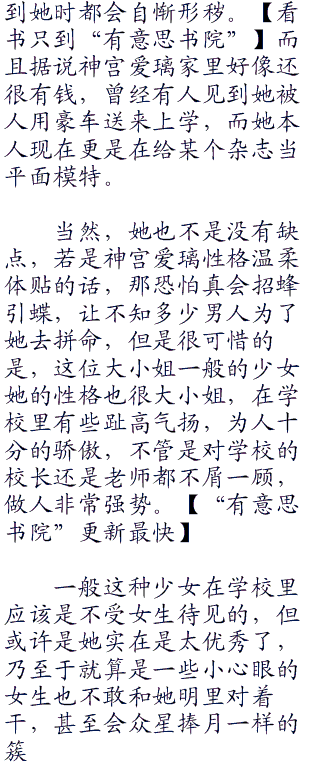 到她时都会自惭形秽。【看
书只到“有意思书院”】而
且据说神宫爱璃家里好像还
很有钱，曾经有人见到她被
人用豪车送来上学，而她本
人现在更是在给某个杂志当
平面模特。
当然，她也不是没有缺
点，若是神宫爱璃性格温柔
体贴的话，那恐怕真会招蜂
引蝶，让不知多少男人为了
她去拼命，但是很可惜的
是，这位大小姐一般的少女
她的性格也很大小姐，在学
校里有些趾高气扬，为人十
分的骄傲，不管是对学校的
校长还是老师都不屑一顾，
做人非常强势。【“有意思
书院”更新最快】
一般这种少女在学校里
应该是不受女生待见的，但
或许是她实在是太优秀了，
乃至于就算是一些小心眼的
女生也不敢和她明里对着
干，甚至会众星捧月一样的
簇